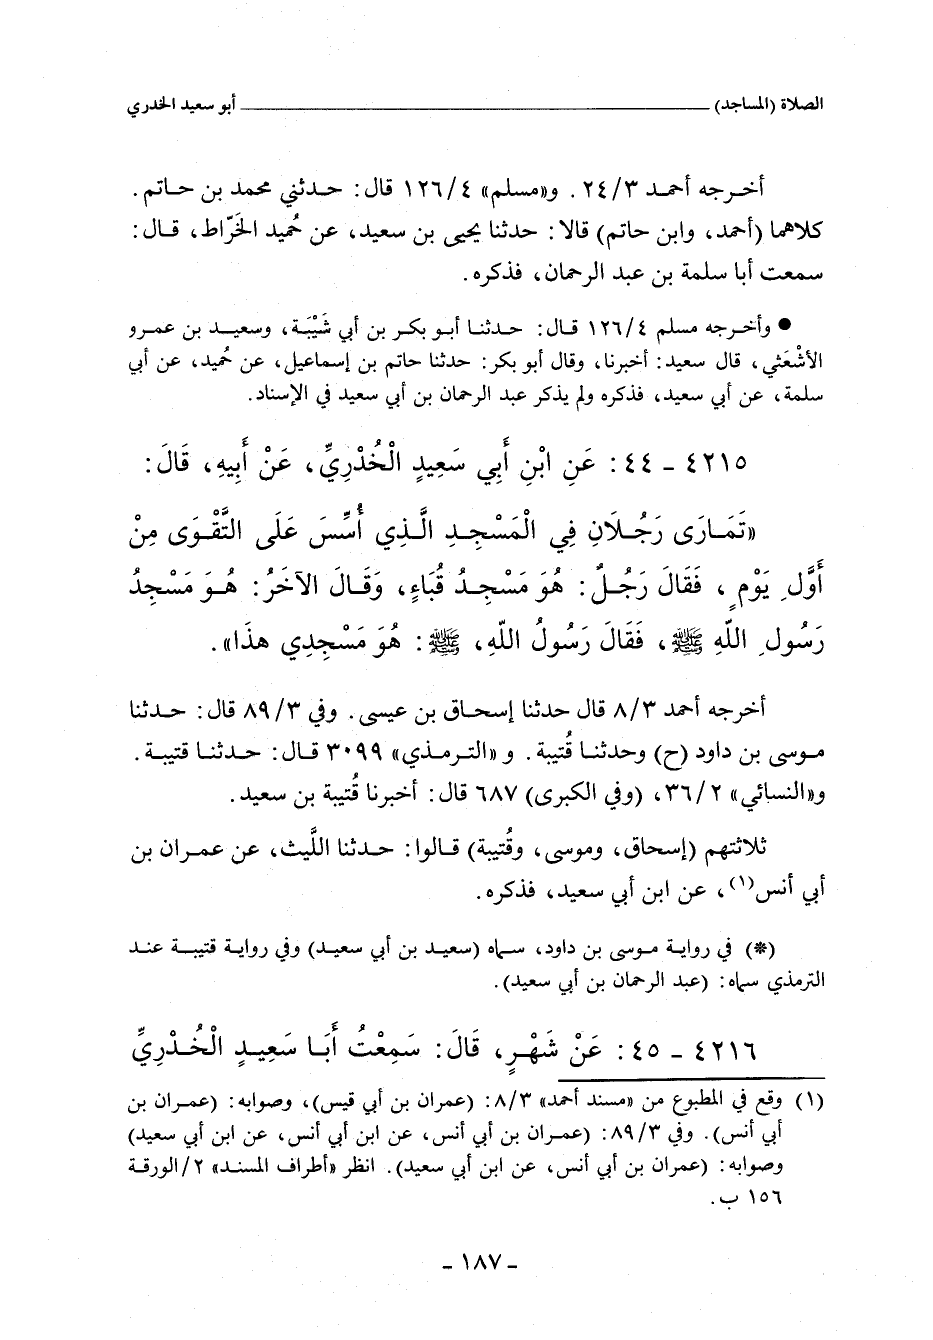 الصلاة (المساجد) ــــــــــ أبو سعيد الخدري
أخرجه أحمد ٢٤/٣ . و«مسلم» ١٢٦/٤ قال : حدثني محمد بن حاتم .
كلاهما (أحمد، وابن حاتم) قالا : حدثنا يحيى بن سعيد، عن حُميد الخَرّاط، قال :
سمعت أبا سلمة بن عبد الرحمان، فذكره .
● وأخرجه مسلم ١٢٦/٤ قال : حدثنا أبو بكر بن أبي شَيْبَة، وسعيد بن عمرو
الأشْعَثي، قال سعيد : أخبرنا، وقال أبو بكر : حدثنا حاتم بن إسماعيل، عن حُميد، عن أبي
سلمة، عن أبي سعيد، فذكره ولم يذكر عبد الرحمان بن أبي سعيد في الإسناد.
٤٢١٥ - ٤٤ : عَنِ ابْنِ أَبِي سَعِيدٍ الْخُدْرِيِّ، عَنْ أَبِيهِ، قَالَ :
«تَمَارَى رَجُلَانِ فِي الْمَسْجِدِ الَّذِي أُسِّسَ عَلَى التَّقْوَى مِنْ
أَوَّلِ يَوْمٍ ، فَقَالَ رَجُلٌ : هُوَ مَسْجِدُ قُبَاءٍ، وَقَالَ الآخَرُ : هُوَ مَسْجِدُ
رَسُولِ اللّهِ ﷺ، فَقَالَ رَسُولُ اللّهِ، ﷺ : هُوَ مَسْجِدِي هذَا» .
أخرجه أحمد ٨/٣ قال حدثنا إسحاق بن عيسى . وفي ٨٩/٣ قال : حدثنا
موسى بن داود (ح) وحدثنا قُتيبة . و «الترمذي» ٣٠٩٩ قال : حدثنا قتيبة .
و«النسائي» ٣٦/٢، (وفي الكبرى) ٦٨٧ قال : أخبرنا قُتيبة بن سعيد .
ثلاثتهم (إسحاق، وموسى، وقُتيبة) قالوا : حدثنا اللَّيث، عن عمران بن
أبي أنس(١)، عن ابن أبي سعيد، فذكره .
(*) في رواية موسى بن داود، سماه (سعيد بن أبي سعيد) وفي رواية قتيبة عند
الترمذي سماه : (عبد الرحمان بن أبي سعيد) .
٤٢١٦ - ٤٥ : عَنْ شَهْرٍ، قَالَ : سَمِعْتُ أَبَا سَعِيدٍ الْخُدْرِيِّ
(١) وقع في المطبوع من «مسند أحمد» ٨/٣ : (عمران بن أبي قيس)، وصوابه : (عمران بن
أبي أنس) . وفي ٨٩/٣ : (عمران بن أبي أنس، عن ابن أبي أنس، عن ابن أبي سعيد)
وصوابه : (عمران بن أبي أنس، عن ابن أبي سعيد) . انظر «أطراف المسند» ٢/ الورقة
١٥٦ ب .
- ١٨٧ -